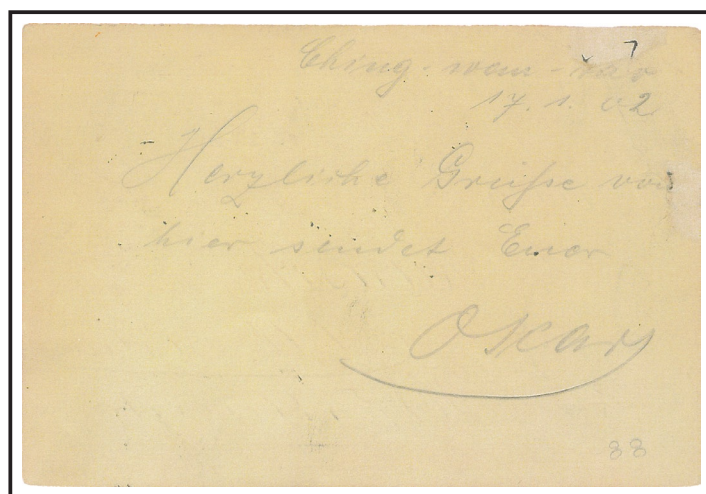 Ching-wan-tao
17.1.02
Herzliche Grüsse von
hier sendet Euer
Oskar
88